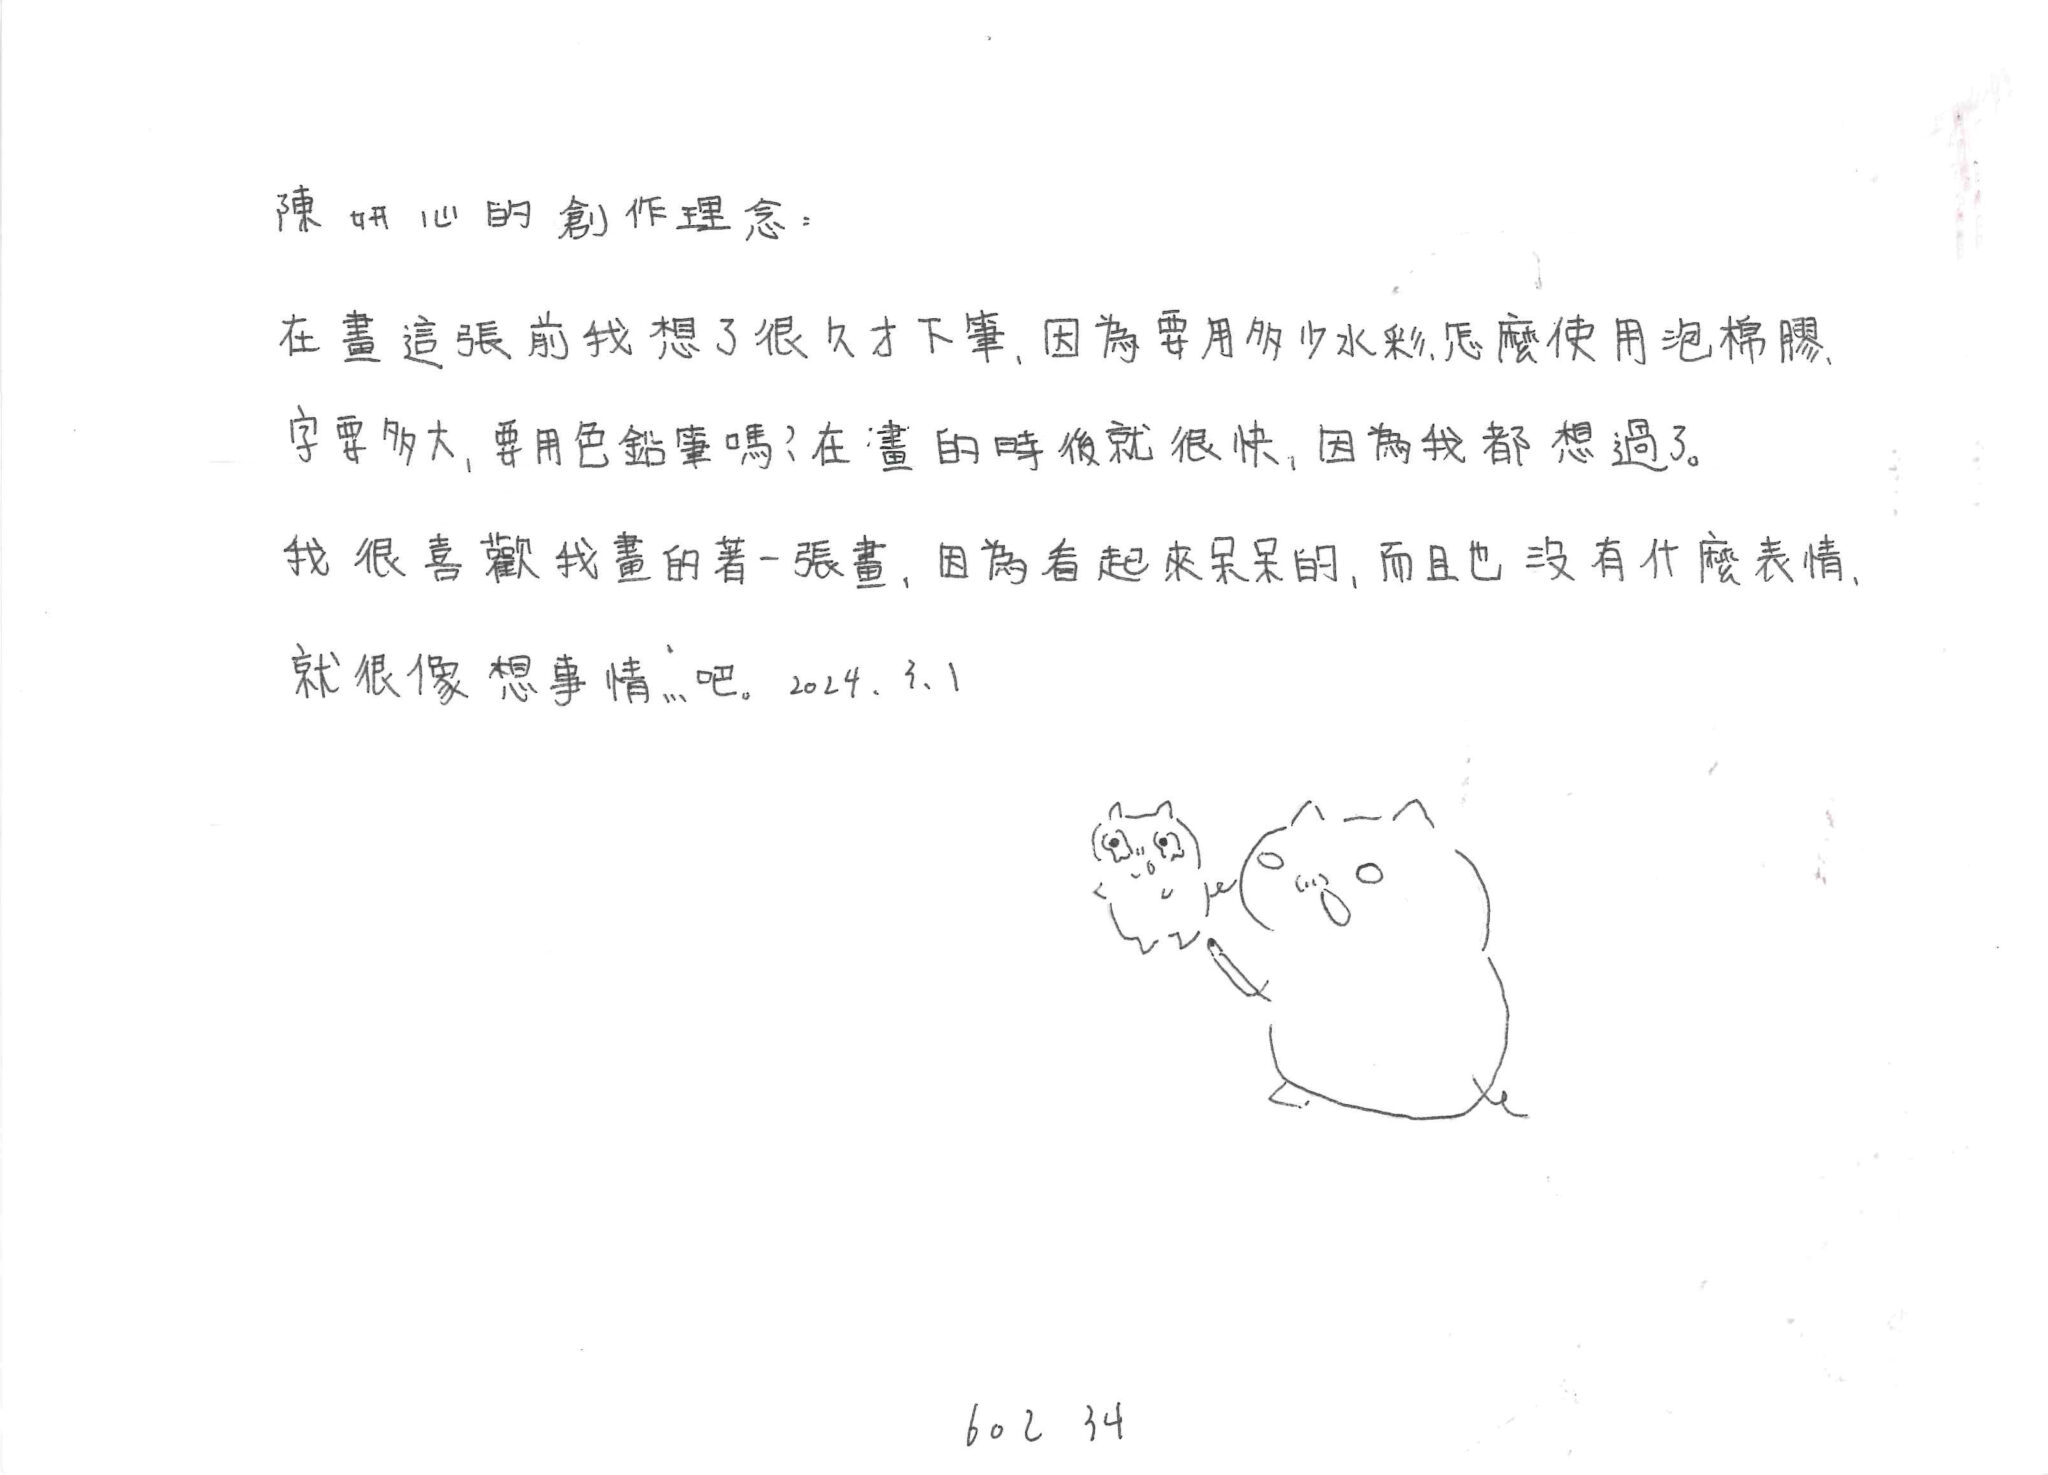 陳妍心的創作理念：
在畫這張前我想了很久才下筆，因為要用多少水彩、怎麼使用泡棉膠、
字要多大，要用色鉛筆嗎？在畫的時後就很快，因為我都想過了。
我很喜歡我畫的著一張畫，因為看起來呆呆的，而且也沒有什麼表情，
就很像想事情……吧。2024.3.1
602 34